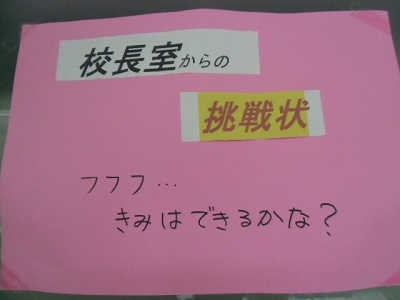 校長室からの
挑戦状
フフフ…
きみはできるかな?